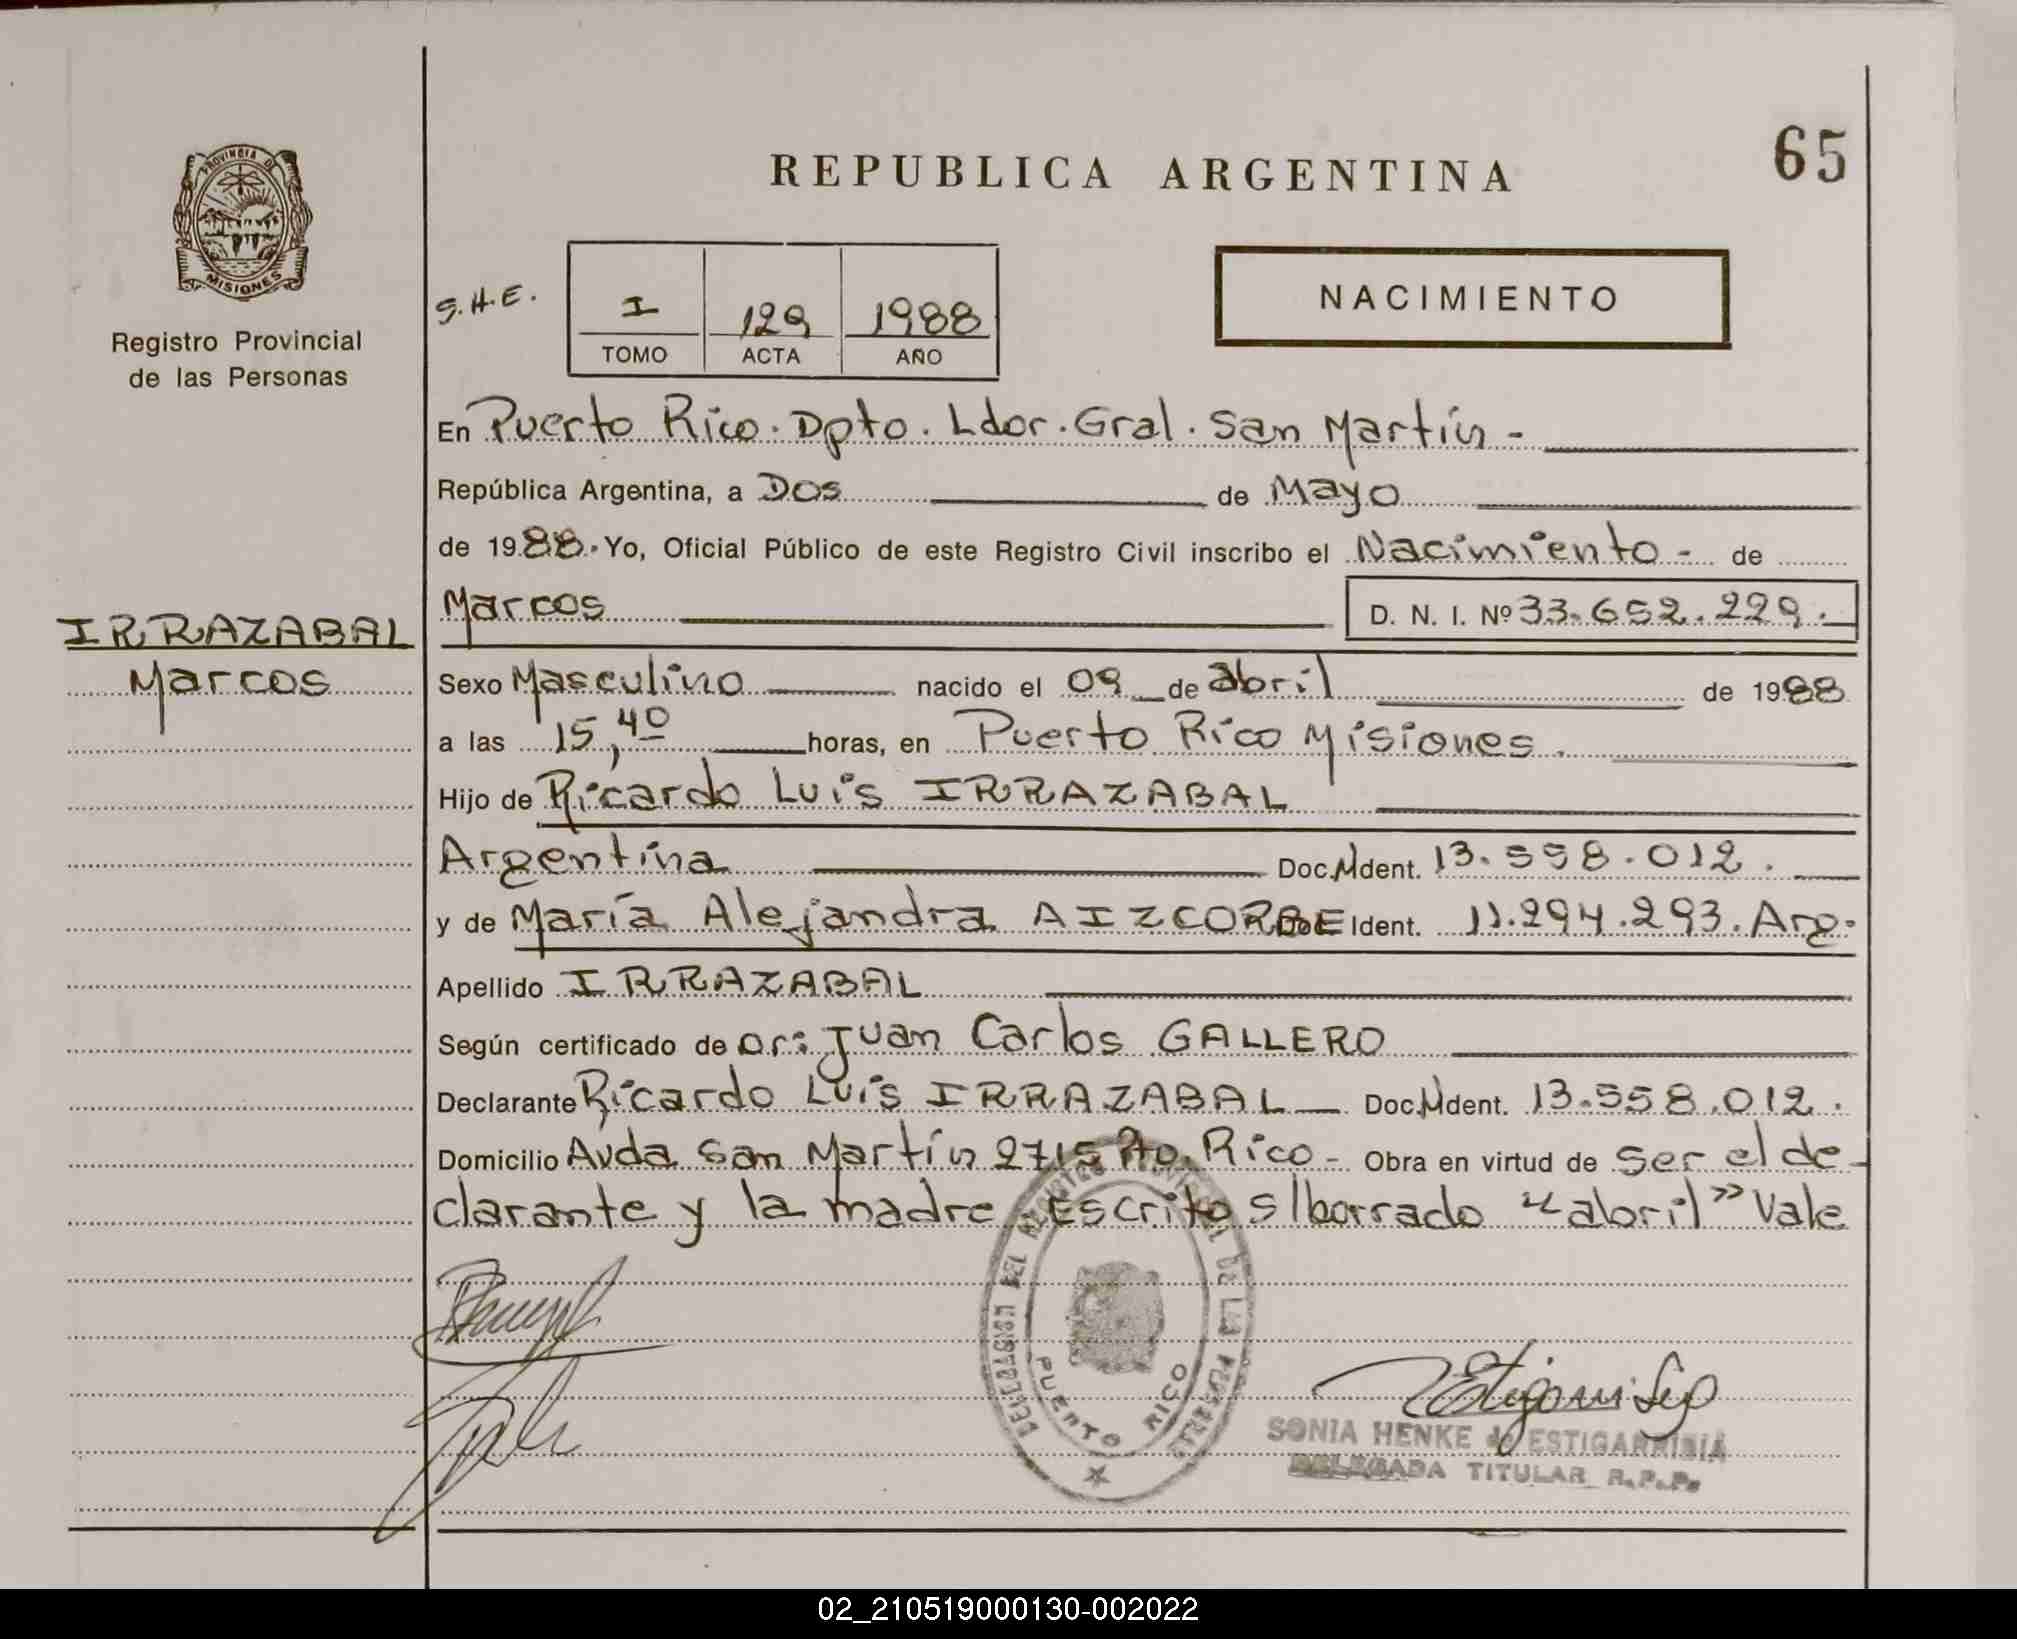 65
REPUBLICA ARGENTINA
PROVINCIA DE
MISIONES
Registro Provincial
de las Personas
S.H.E.
I 129 1988
TOMO ACTA AÑO
NACIMIENTO
En Puerto Rico. Dpto. Ldor. Gral. San Martín -
República Argentina, a Dos de Mayo
de 1988. Yo, Oficial Público de este Registro Civil inscribo el Nacimiento - de
Marcos D. N. I. Nº 33.652.229.
IRRAZABAL
Marcos
Sexo Masculino nacido el 09 de abril de 1988
a las 15,40 horas, en Puerto Rico Misiones.
Hijo de Ricardo Luis IRRAZABAL
Argentina Doc. Ident. 13.558.012.
y de María Alejandra AIZCORBE Ident. 11.294.293. Arg.
Apellido IRRAZABAL
Según certificado de Dr: Juan Carlos GALLERO
Declarante Ricardo Luis IRRAZABAL Doc. Ident. 13.558.012.
Domicilio Avda San Martín 2715 Pto. Rico - Obra en virtud de ser el de-
clarante y la madre. Escrito s/borrado "abril" Vale
DELEGACION DEL REGISTRO PROVINCIAL DE LAS PERSONAS
PUERTO RICO
SONIA HENKE de ESTIGARRIBIA
DELEGADA TITULAR R.P.P.
02_210519000130-002022